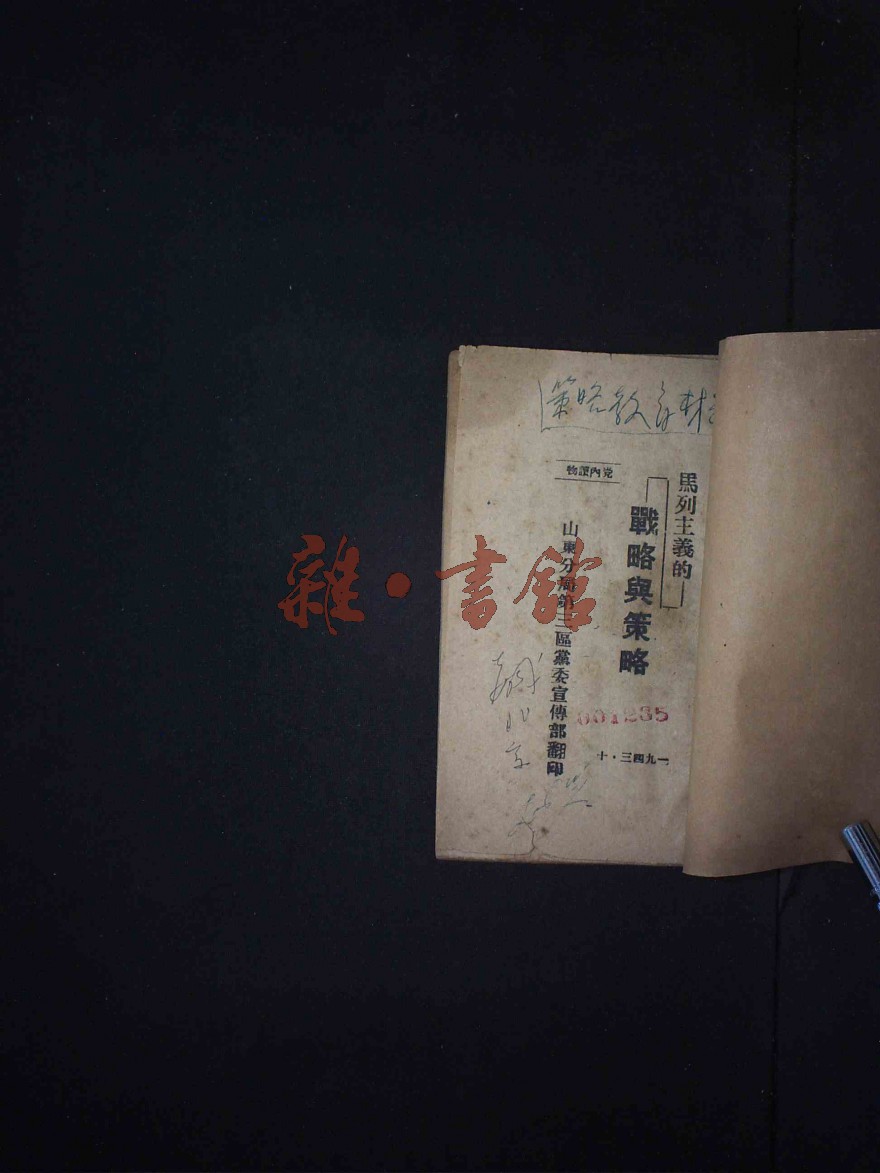 策略教育材
馬列主義的
戰略與策略
党內讀物
山東分局第三區黨委宣傳部翻印
001235
一九四三·十
雜·書館